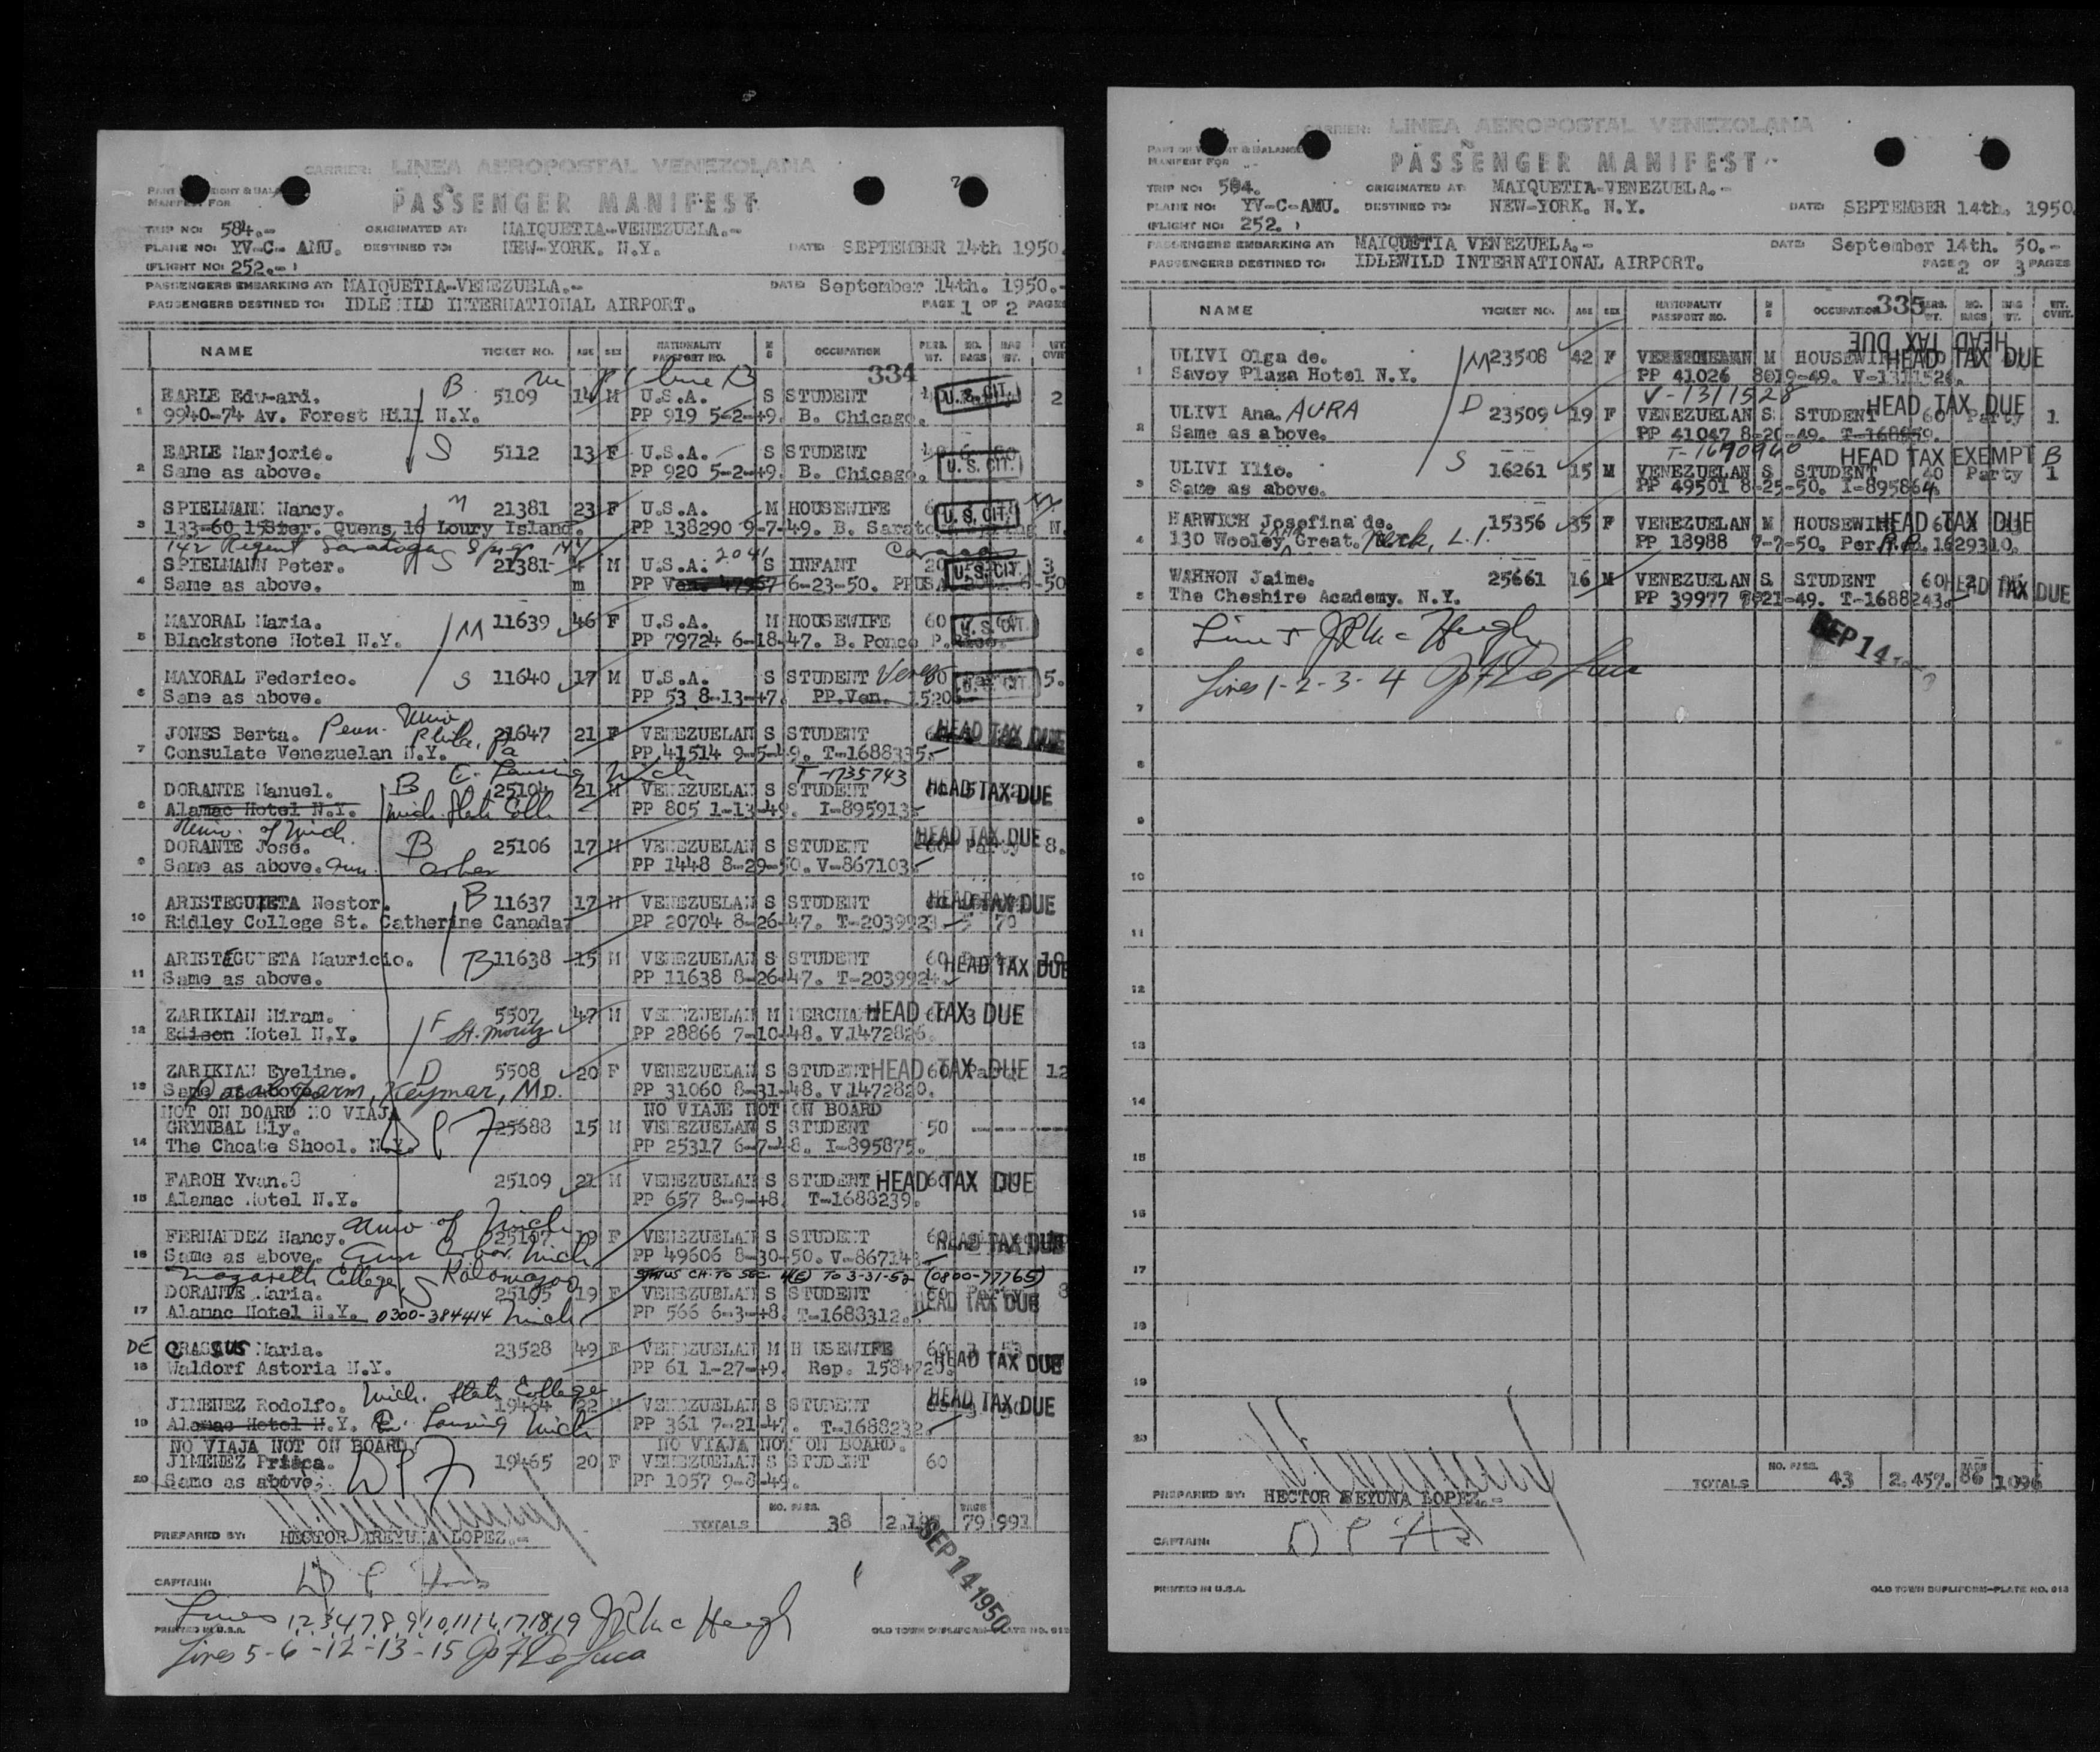 CARRIER: LINEA AEROPOSTAL VENEZOLANA
MANIFEST FOR
PASSENGER MANIFEST
TRIP NO: 584.- ORIGINATED AT: MAIQUETIA-VENEZUELA.-
PLANE NO: YV-C- AMU. DESTINED TO: NEW-YORK. N.Y. DATE: SEPTEMBER 14th 1950.
(FLIGHT NO: 252.- )
PASSENGERS EMBARKING AT: MAIQUETIA-VENEZUELA.- DATE: September 14th. 1950.-
PASSENGERS DESTINED TO: IDLE ILD INTERNATIONAL AIRPORT. PAGE 1 OF 2 PAGES
NAME TICKET NO. AGE SEX NATIONALITY PASSPORT NO. M S OCCUPATION PERS. WT. NO. BAGS BAG WT.
334
1 EARLE Edw-ard. B 5109 14 M U.S.A. S STUDENT U.S. CIT. 2
9940-74 Av. Forest Hill N.Y. PP 919 5-2-49. B. Chicago.
2 EARLE Marjorie. S 5112 13 F U.S.A. S STUDENT
Same as above. PP 920 5-2-49. B. Chicago. U.S. CIT.
SPIELMANN Nancy. 21381 23 F U.S.A. M HOUSEWIFE U.S. CIT.
3 133-60 Quens, 16 Loury Island. PP 138290 9-7-49. B.
142 Regent Saratoga
SPIELMANN Peter. S 21381- M U.S.A. 2041 S INFANT 20 U.S. CIT. 3
4 Same as above. m PP Ven. 47967 6-23-50.
MAYORAL Maria. M 11639 46 F U.S.A. M HOUSEWIFE 60 U.S. CIT.
5 Blackstone Hotel N.Y. PP 79724 6-18-47. B. Ponce
MAYORAL Federico. S 11640 17 M U.S.A. S STUDENT U.S. CIT. 5.
6 Same as above. PP 53 8-13-47. PP.Ven. 1520
JONES Berta. Penn. Univ Phila, Pa 21647 21 F VENEZUELAN S STUDENT HEAD TAX DUE
7 Consulate Venezuelan N.Y. PP 41514 9-5-49. T-1688335.
E. Lansing Mich T-1735743
DORANTE Manuel. B 25104 21 M VENEZUELAN S STUDENT HEAD TAX DUE
8 Alamac Hotel N.Y. Mich. State Coll PP 805 1-13-49. I-895913
Univ. of Mich.
DORANTE Jose. B 25106 17 M VENEZUELAN S STUDENT HEAD TAX DUE 8.
9 Same as above. Ann Arbor PP 1448 8-29-50. V-867103
ARISTEGUIETA Nestor. B 11637 17 M VENEZUELAN S STUDENT HEAD TAX DUE
10 Ridley College St. Catherine Canada. PP 20704 8-26-47. T-2039923 70
ARISTEGUIETA Mauricio. B 11638 15 M VENEZUELAN S STUDENT 60 HEAD TAX DUE
11 Same as above. PP 11638 8-26-47. T-2039924.
ZARIKIAN Miram. F 5507 47 M VENEZUELAN M MERCHAN HEAD TAX DUE
12 Edison Hotel N.Y. St. Moritz PP 28866 7-10-48. V.1472826.
ZARIKIAN Eveline. D 5508 20 F VENEZUELAN S STUDENT HEAD TAX DUE 12
13 Same as above. Farm, Keymar, MD. PP 31060 8-31-48. V.1472820.
NOT ON BOARD NO VIAJA NO VIAJE NOT ON BOARD
GRYNBAL Ely. 25688 15 M VENEZUELAN S STUDENT 50
14 The Choate Shool. N.Y. PP 25317 6-7-48. I-895875.
FAROH Yvan. 25109 21 M VENEZUELAN S STUDENT HEAD TAX DUE
15 Alamac Hotel N.Y. PP 657 8-9-48. T-1688239.
FERNANDEZ Nancy. Univ of Mich 25107 19 F VENEZUELAN S STUDENT HEAD TAX DUE
16 Same as above. Ann Arbor Mich PP 49606 8-30-50. V-867143
Nazareth College Kalamazoo STATUS CH. TO SEC. 4(E) TO 3-31-52 (0800-77765)
DORANTE Maria. S 25105 19 F VENEZUELAN S STUDENT HEAD TAX DUE
17 Alamac Hotel N.Y. 0300-384414 Mich PP 566 6-3-48. T-1688312.
DE Maria. 23528 49 F VENEZUELAN M H USEWIFE HEAD TAX DUE
18 Waldorf Astoria N.Y. PP 61 1-27-49. Rep.
JIMENEZ Rodolfo. Mich. State College 19464 22 M VENEZUELAN S STUDENT HEAD TAX DUE
19 Alamac Hotel N.Y. E. Lansing Mich PP 361 7-21-47. T-1688232.
NO VIAJA NOT ON BOARD. NO VIAJA NOT ON BOARD.
JIMENEZ Prisca. 19465 20 F VENEZUELAN S STUDENT 60
20 Same as above. PP 1057 9-8-49.
TOTALS NO. PASS. 38 79 991
PREPARED BY: HECTOR AREYUNA LOPEZ.-
SEP 14 1950
CAPTAIN:
Lines 1,2,3,4,7,8,9,10,11,16,17,18,19 JR McHeugh
PRINTED IN U.S.A. OLD TOWN DUPLIFORM-PLATE NO. 913
Lines 5-6-12-13-15 Jo F DeLuca
CARRIER: LINEA AEROPOSTAL VENEZOLANA
MANIFEST FOR
PASSENGER MANIFEST
TRIP NO: 584. ORIGINATED AT: MAIQUETIA-VENEZUELA.-
PLANE NO: YV-C-AMU. DESTINED TO: NEW-YORK. N.Y. DATE: SEPTEMBER 14th. 1950.
(FLIGHT NO: 252. )
PASSENGERS EMBARKING AT: MAIQUETIA VENEZUELA.- DATE: September 14th. 50.-
PASSENGERS DESTINED TO: IDLEWILD INTERNATIONAL AIRPORT. PAGE 2 OF 3 PAGES
NAME TICKET NO. AGE SEX NATIONALITY PASSPORT NO. M S OCCUPATION 335 PERS. WT. NO. BAGS BAG WT. WT. OVWT.
HEAD TAX DUE
ULIVI Olga de. M 23508 42 F VENEZUELAN M HOUSEWI HEAD TAX DUE
1 Savoy Plaza Hotel N.Y. PP 41026 8019-49.
V-1311528
ULIVI Ana. AURA D 23509 19 F VENEZUELAN S STUDENT HEAD TAX DUE 60 Party 1.
2 Same as above. PP 41047 8-20-49.
T-1690940
ULIVI Ilio. S 16261 15 M VENEZUELAN S STUDENT HEAD TAX EXEMPT B 40 Party 1
3 Same as above. PP 49501 8-25-50. I-895864
HARWICH Josefina de. 15356 35 F VENEZUELAN M HOUSEWI HEAD TAX DUE
4 130 Wooley Great. Neck, L.I. PP 18988 7-7-50. 1629310.
WAHNON Jaime. 25661 16 M VENEZUELAN S STUDENT 60 HEAD TAX DUE
5 The Cheshire Academy. N.Y. PP 39977 T-1688243.
6 Line 5 JR McHeugh SEP 14
Lines 1-2-3-4 Jo F DeLuca
7
8
9
10
11
12
13
14
15
16
17
18
19
20
TOTALS NO. PASS. 43 2.457. BAGS 86 1096
PREPARED BY: HECTOR REYUNA LOPEZ.-
CAPTAIN:
PRINTED IN U.S.A. OLD TOWN DUPLIFORM-PLATE NO. 913